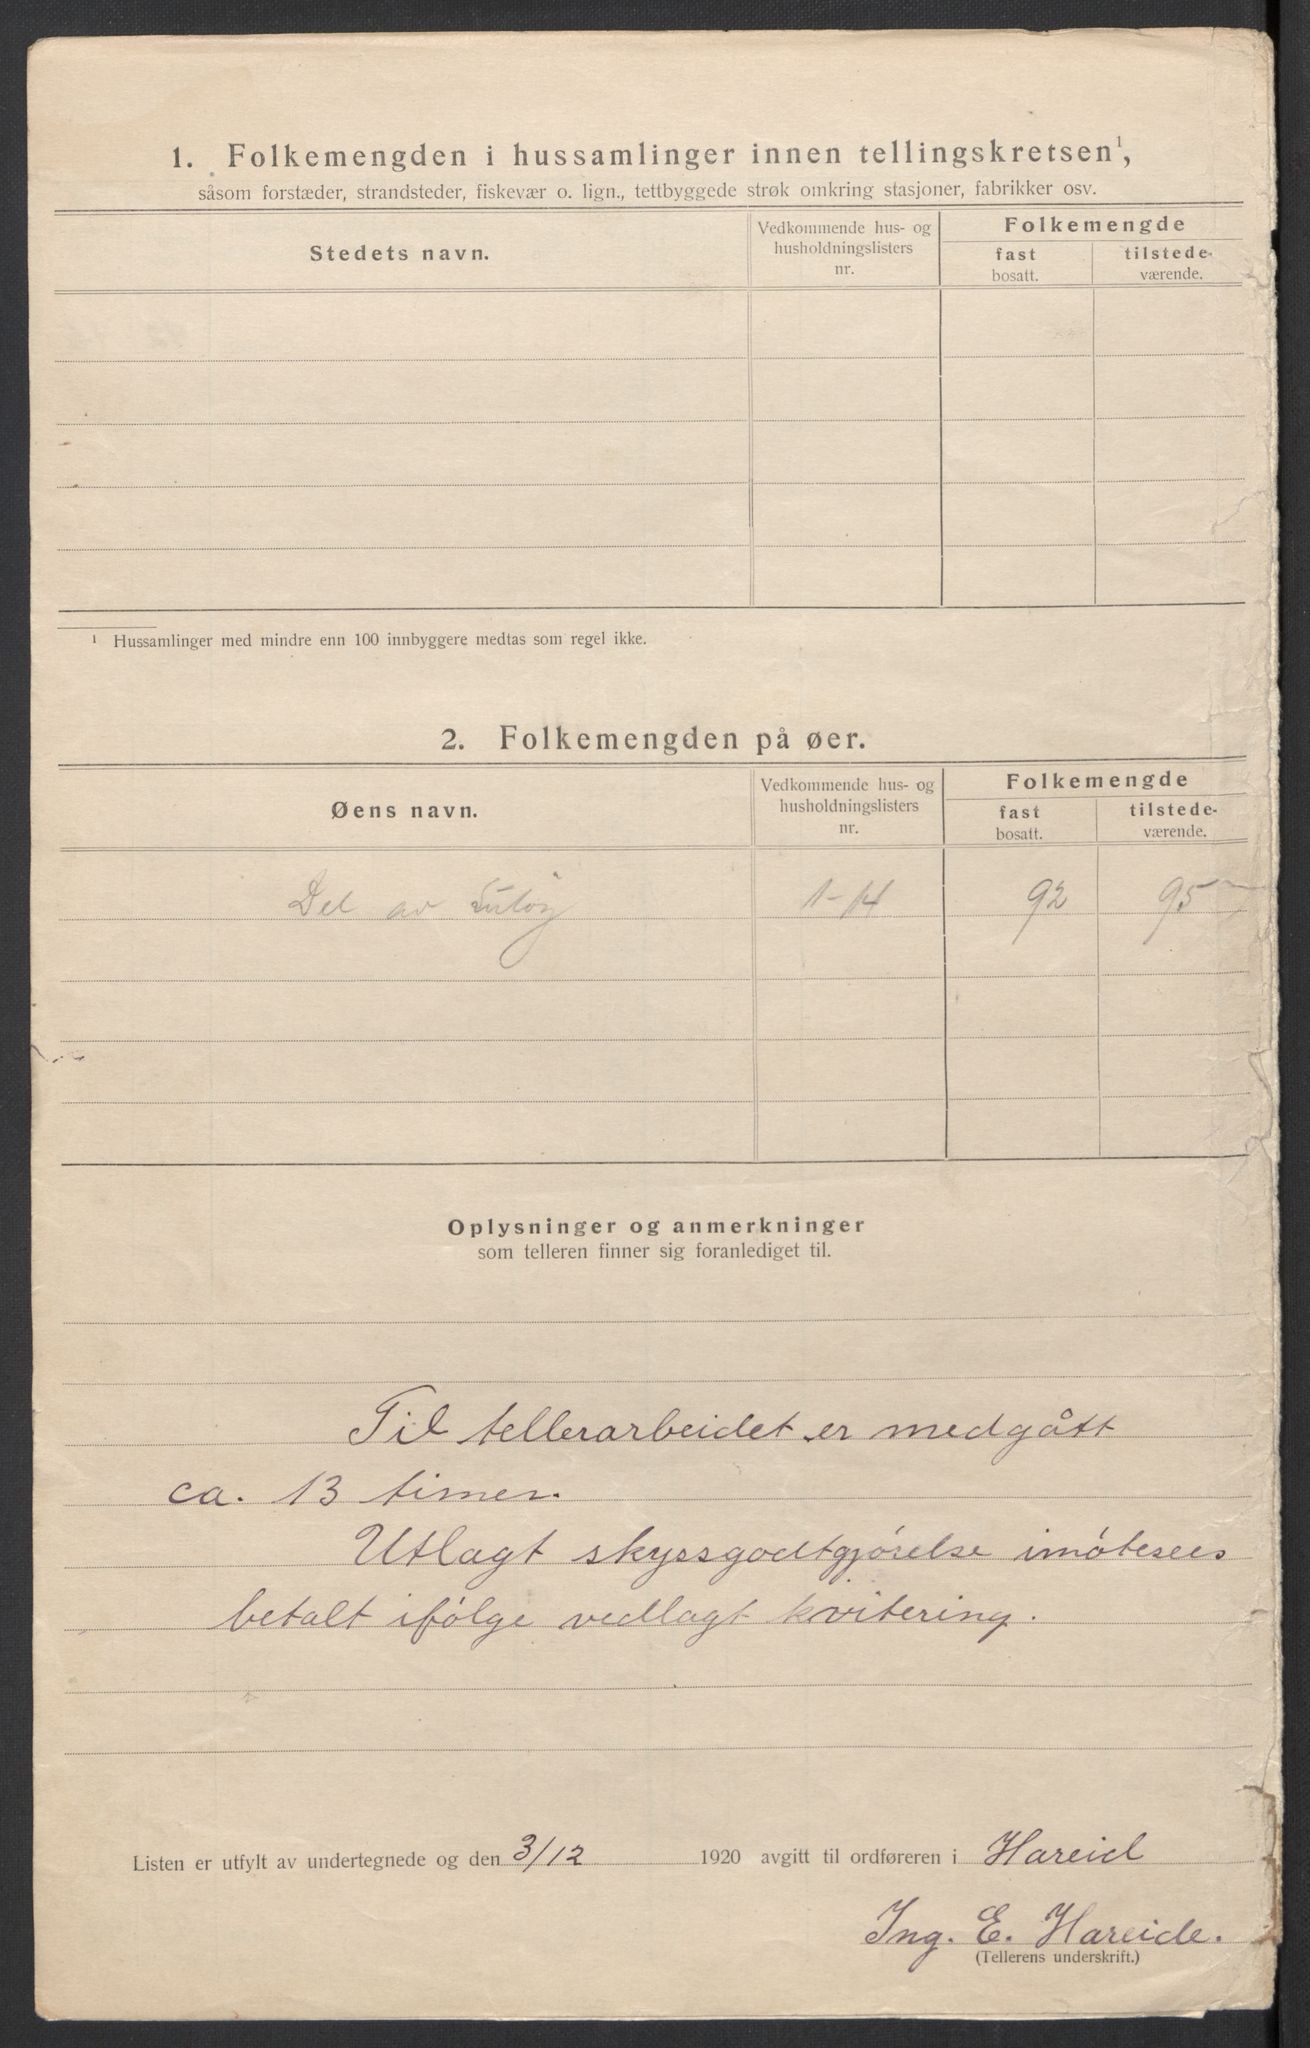 1. Folkemengden i hussamlinger innen tellingskretsen¹,
såsom forstæder, strandsteder, fiskevær o. lign., tettbyggede strøk omkring stasjoner, fabrikker osv.
Stedets navn.
Vedkommende hus- og
husholdningslisters
nr.
Folkemengde
fast
bosatt.
tilstede-
værende.
¹ Hussamlinger med mindre enn 100 innbyggere medtas som regel ikke.
2. Folkemengden på øer.
Øens navn.
Vedkommende hus- og
husholdningslisters
nr.
Folkemengde
fast
bosatt.
tilstede-
værende.
Del av 1-14 92 95
Oplysninger og anmerkninger
som telleren finner sig foranlediget til.
Til tellerarbeidet er medgått
ca. 13 timer.
Utlagt skyssgodtgjørelse imøtesees
betalt ifølge vedlagt kvitering.
Listen er utfylt av undertegnede og den 3/12 1920 avgitt til ordføreren i Hareid
Ing. E. Hareide.
(Tellerens underskrift.)